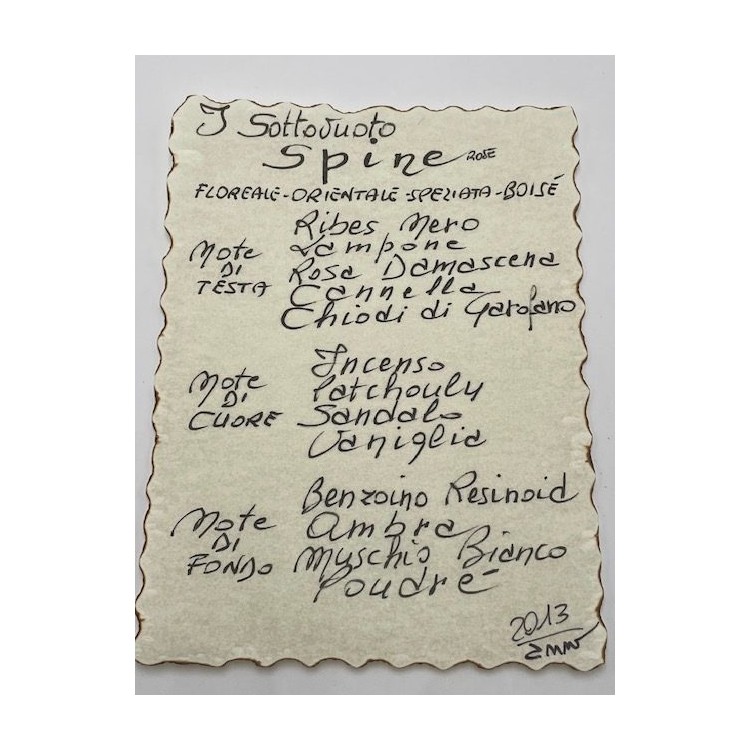 I Sottovuoto
Spine ROSE
FLOREALE-ORIENTALE-SPEZIATA-BOISÉ
Note DI TESTA
Ribes Nero
Lampone
Rosa Damascena
Cannella
Chiodi di Garofano
Note DI CUORE
Incenso
Patchouly
Sandalo
Vaniglia
Note DI FONDO
Benzoino Resinoid
Ambra
Muschio Bianco
Poudré
2013